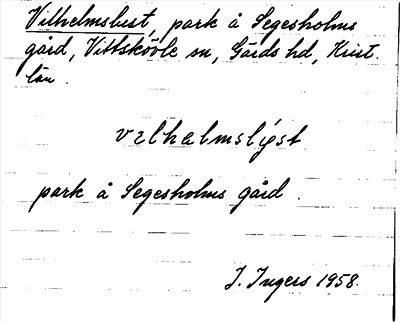 Vilhelmslust, park å Segesholms
gård, Vittskövle sn, Gärds hd, Krist.
län.
vɪlhɛlmslẏst
park å Segesholms gård.
I. Ingers 1958.